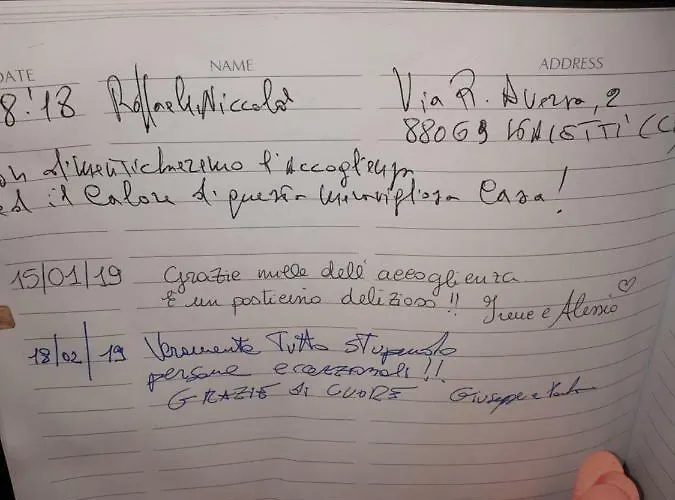 DATE NAME ADDRESS
8.'18 Raffaele Niccolò Via R. Averna, 2
88069
dimenticheremo l'accoglienza
ed il Calore di questa meravigliosa Casa!
15/01/19 Grazie mille dell' accoglienza
È un posticino delizioso !! Irene e Alessio ♡
18/02/19 Veramente Tutto stupendo
persone eccezionali !!
GRAZIE DI CUORE Giuseppe e